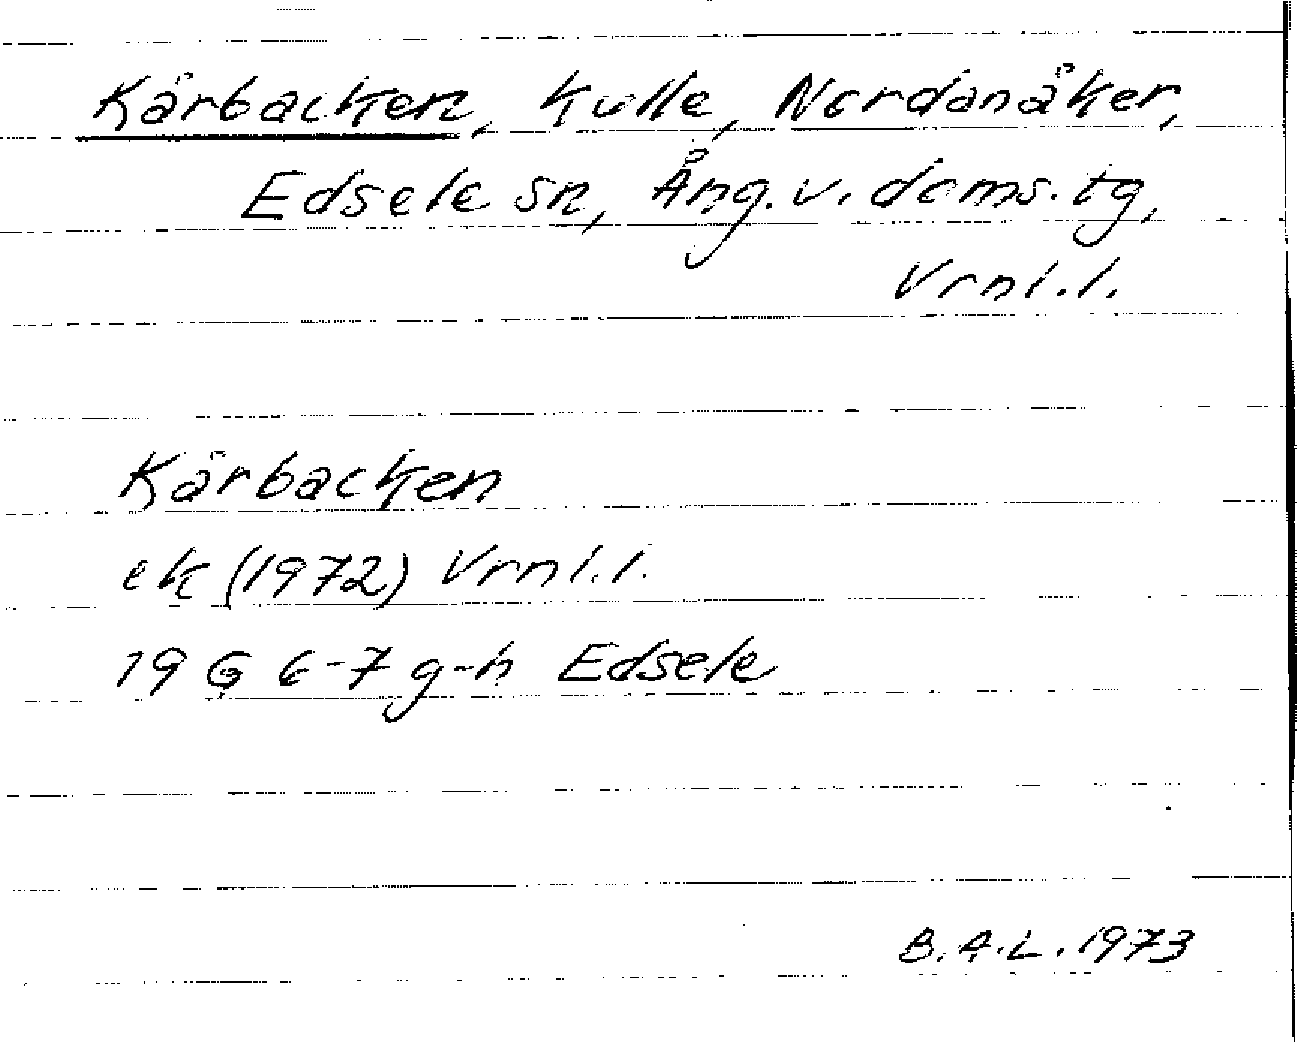 Kärbacken, kulle, Nordanåker,
Edsele sn, Ång. v. doms. tg,
Vrnl. l.
Kärbacken
ek (1972) Vrnl. l.
19 G 6-7 g-h Edsele
B. A. L. 1973